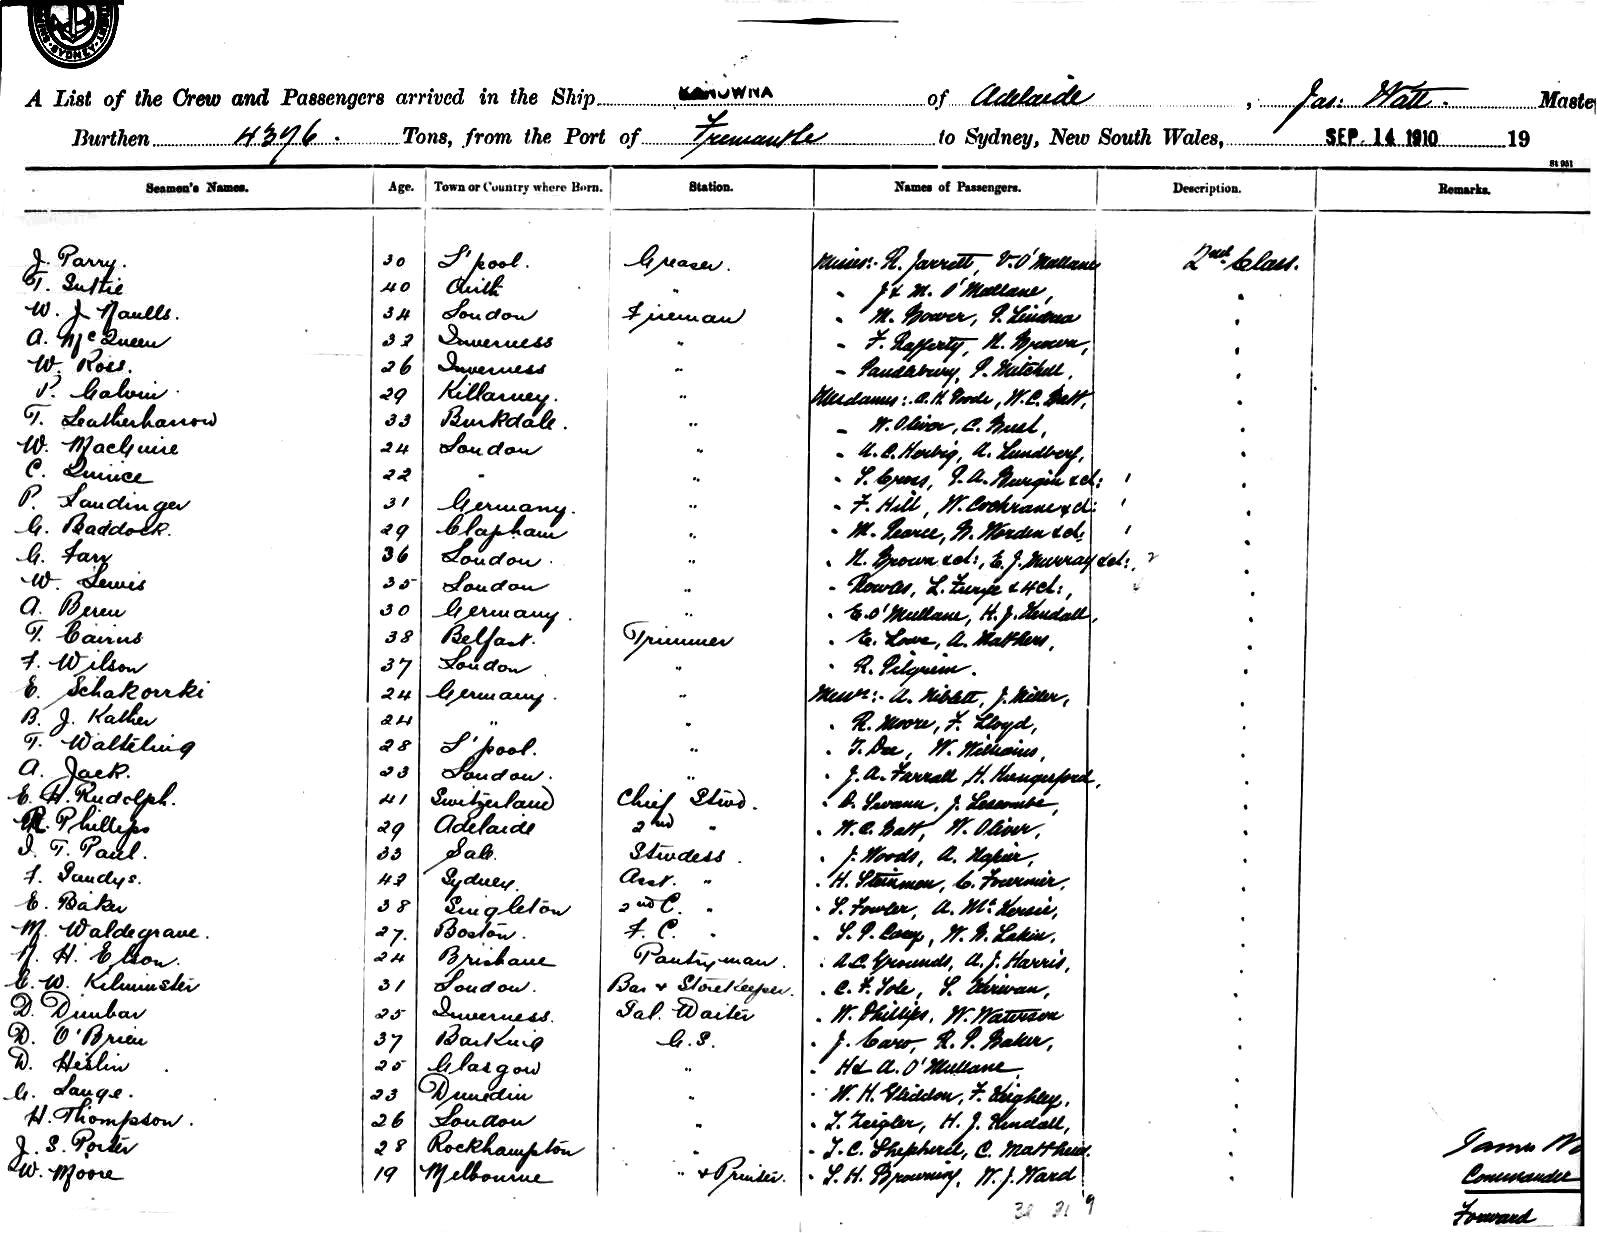 SYDNEY
A List of the Crew and Passengers arrived in the Ship KANOWNA of Adelaide, Jas: Watt. Maste
Burthen 4376. Tons, from the Port of Fremantle to Sydney, New South Wales, SEP. 14 1910 19
St 951
Seamen's Names. Age. Town or Country where Born. Station. Names of Passengers. Description. Remarks.
J. Parry. 30 L'pool. Greaser. Misses:- R. Jarrett, V. O'Mullane 2nd Class.
T. Suttie 40 " J & M. O'Mullane, "
W. J. Naulls. 34 London Fireman " M. Bower, P. "
A. McQueen 32 Inverness " " F. Rafferty, N. Brown, "
W. Ross. 26 Inverness " - P. Mitchell, "
P. Galvin. 29 Killarney. " Mesdames:. A. H. W. C. Batt, "
T. Leatherbarrow 33 Burkdale. " - W. Oliver, C. Bush, "
W. MacGuire 24 London " - A. C. Herbig, A. Lundberg, "
C. Quince 22 " " " S. P. A. Burgin & ch: 1 "
P. Sandinger 31 Germany. " - F. Hill, W. Cochrane & ch: 1 "
G. Baddock. 29 Clapham " " M. Pearce, G. Worden & ch: 1 "
G. Farr 36 London. " " N. Brown & ch:, E. J. Murray & ch:, 2 "
W. Lewis 35 London " - L. & 4 ch:, "
A. Beren 30 Germany. " " E. O'Mullane, H. J. Kendall, "
T. Cairns 38 Belfast. Trimmer " E. Lowe, A. Matthers, "
F. Wilson 37 London " " R. Pilgrim. "
E. Schakorrki 24 Germany. " Messrs:- A. Niblett, J. Miller, "
B. J. Kather 24 " " " R. Moore, F. Lloyd, "
T. Walteling 28 L'pool. " " T. Dee, W. Williams, "
A. Jack. 23 London. " " J. A. Farrall, H. Hungerford, "
E. H. Rudolph. 41 Switzerland Chief Stwd. " D. Swann, J. Lescombe, "
R. Phillips 29 Adelaide 2nd " " W. C. Batt, W. Oliver, "
I. T. Paul. 33 Sale. Stwdess. " J. Woods, A. Napier, "
F. Sandys. 42 Sydney. Asst. " " H. Steinmon, C. Fournier, "
E. Baker 38 Singleton 2nd C. " " S. Fowler, A. McKersie, "
M. Waldegrave. 27. Boston. F. C. " " S. P. W. G. Lakin, "
N. H. Elson. 24 Brisbane Pantryman. " A. C. Grounds, A. J. Harris, "
C. W. Kilminster 31 London. Bar & Storekeeper. " C. F. Sole, S. Kirwan, "
D. Dunbar 25 Inverness. Sal. Waiter " W. Phillips, W. Waterson "
D. O'Brien 37 Barking G.S. " J. Caro, R. P. Baker, "
D. Heslin 25 Glasgow " " H & A. O'Mullane, "
G. Lange. 23 Dunedin " " W. H. Gliddon, F. Keighley, "
H. Thompson. 26 London " " T. Zeigler, H. J. Kendall, "
J. S. Porter 28 Rockhampton " " T. C. Shepherd, C. "
W. Moore 19 Melbourne " & Printer. " S. H. Browning, W. J. Ward "
James W
Commander
31 21 9
Forward